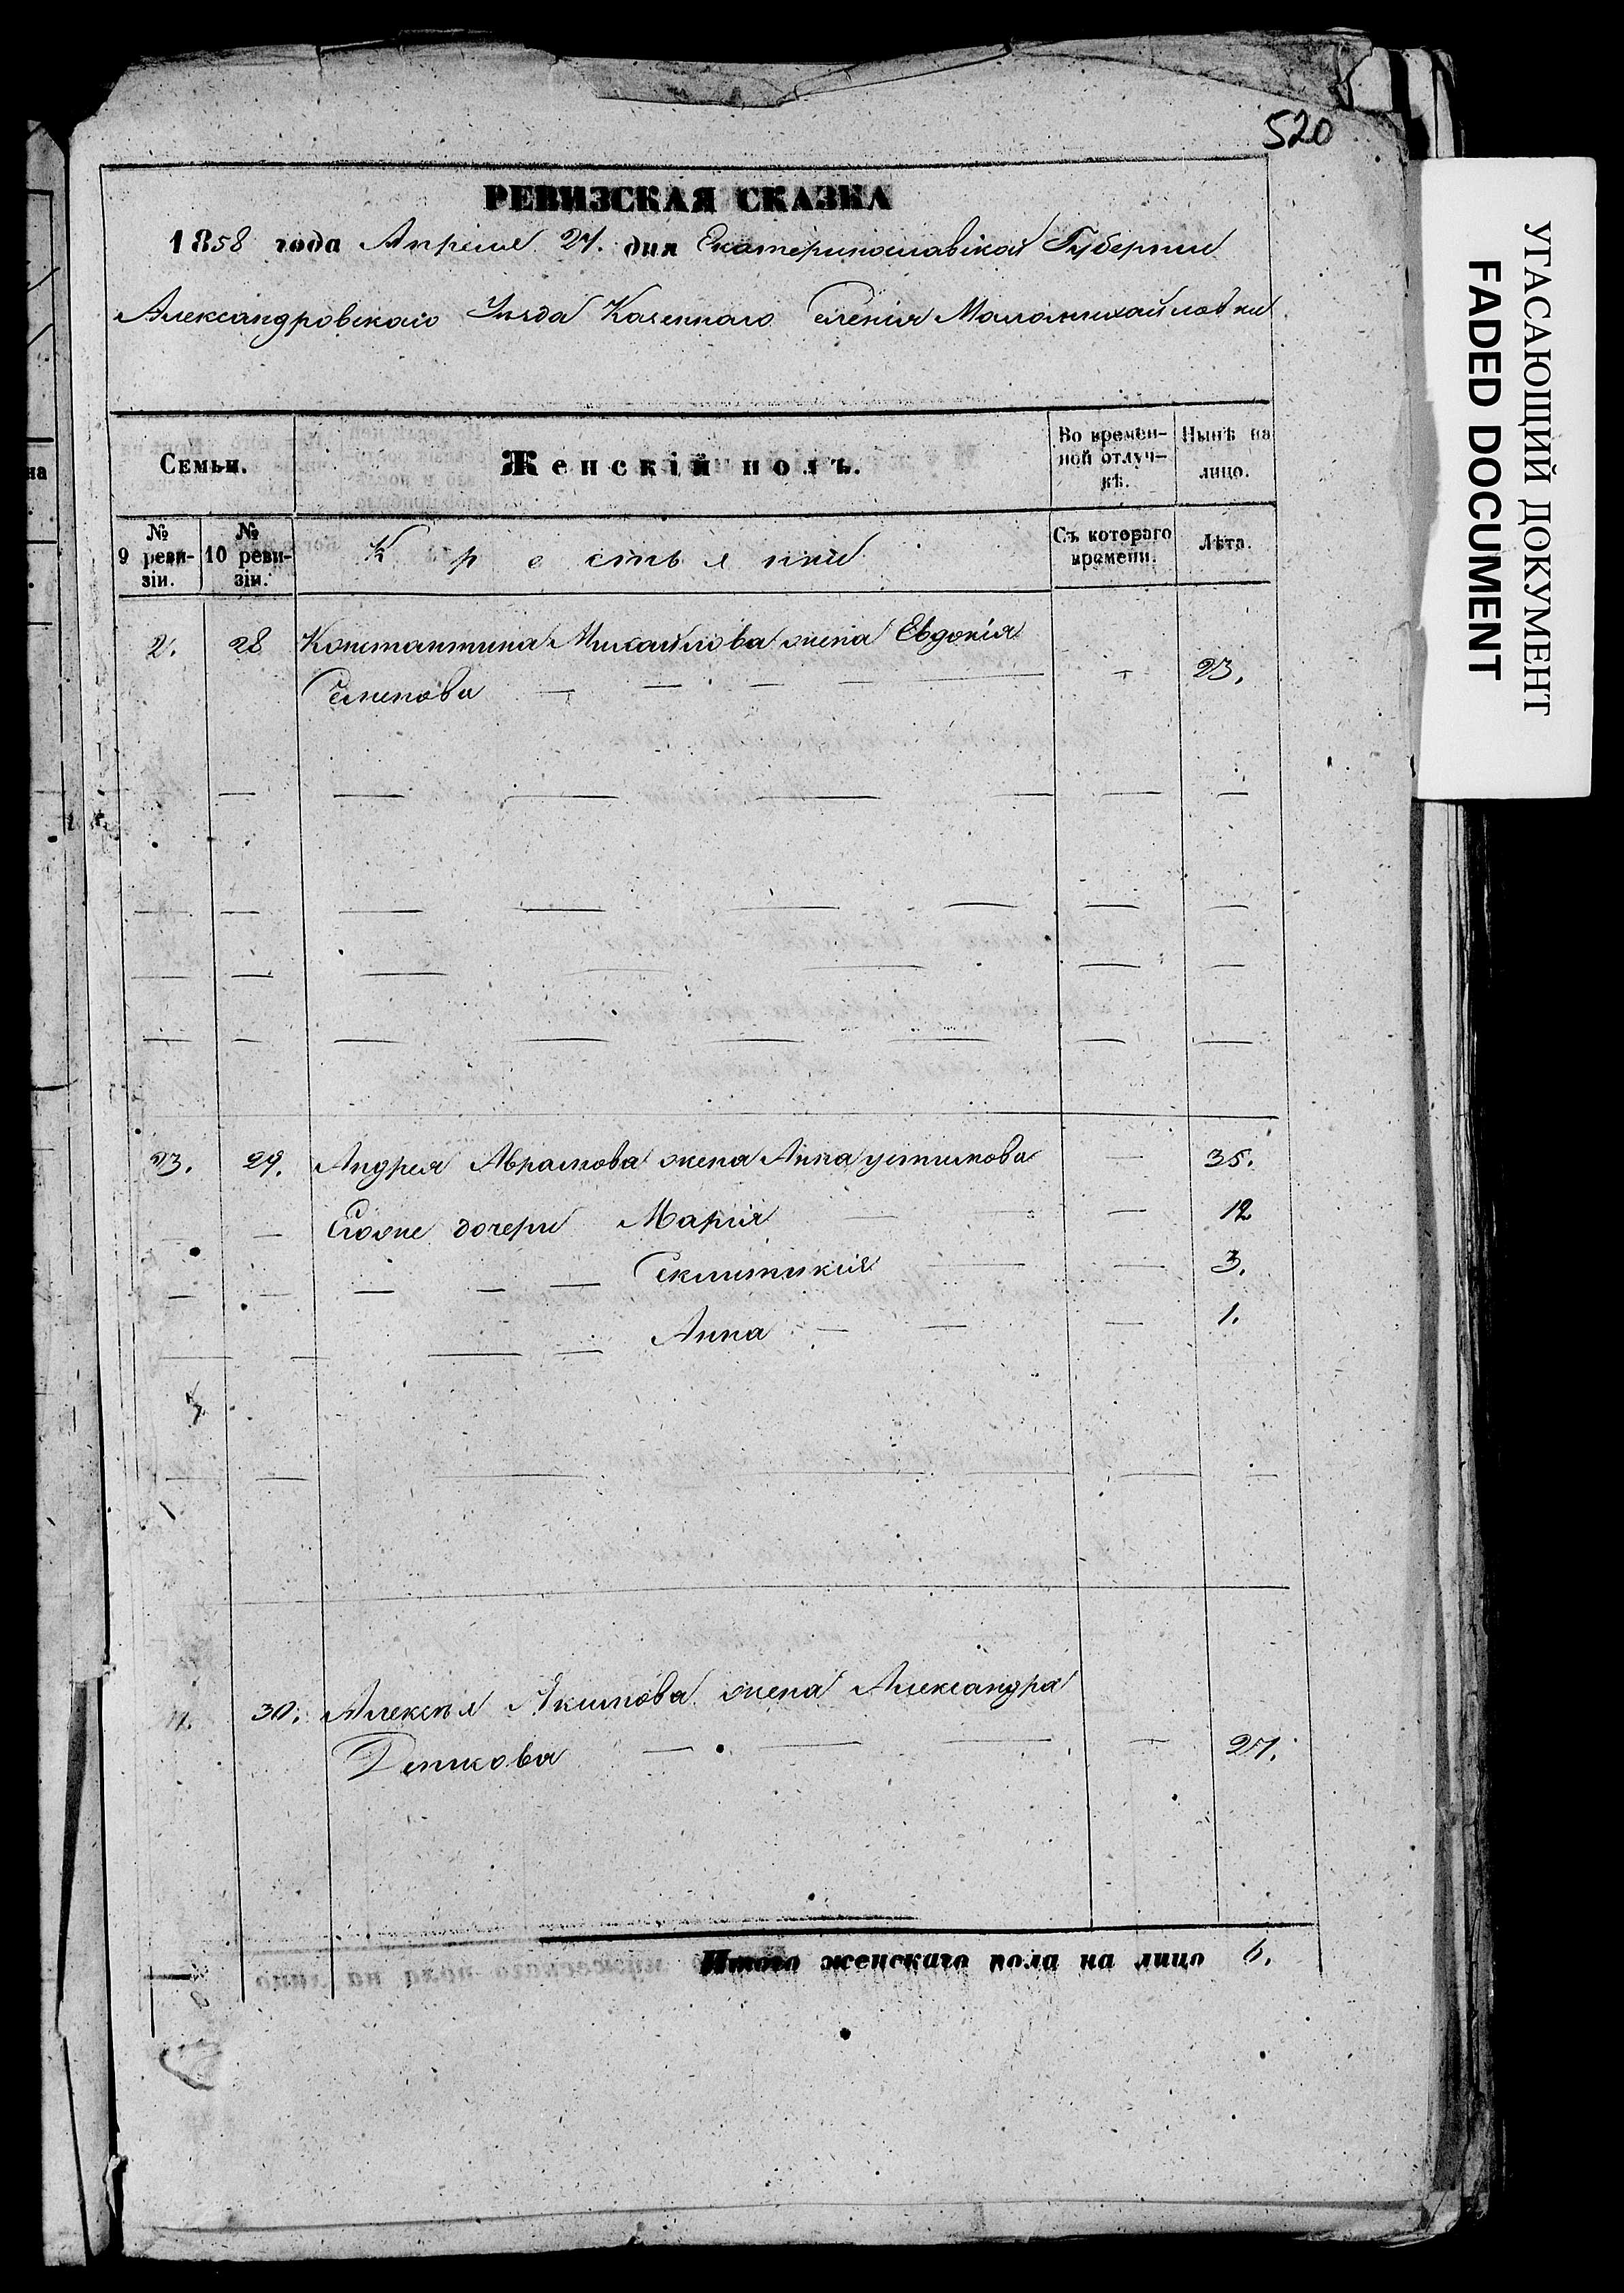 520
РЕВИЗСКАЯ СКАЗКА
1858 года Апреля 27. дня Екатеринославской Губернии
Александровскаго Уѣзда Казеннаго Селенія Маломихайловки
Семьи.
Женскій полъ.
Во времен-
ной отлуч-
кѣ.
Нынѣ на
лицо.
№
9 реви-
зіи.
№
10 реви-
зіи.
Крестьяник
Съ котораго
времени.
Лѣта.
2. 28 Константина Михайлова жена Евдокія
Семенова — — — — — — 23.
23. 29. Андрея Абрамова жена Анна Устимова — 35.
— — Егоже дочери Марія — — 12
— — — — — — — 3.
Анна — — — 1.
30. Алексѣя Якимова жена Александра
— — — — 27.
Итого женскаго пола на лицо 6.
УГАСАЮЩИЙ ДОКУМЕНТ
FADED DOCUMENT